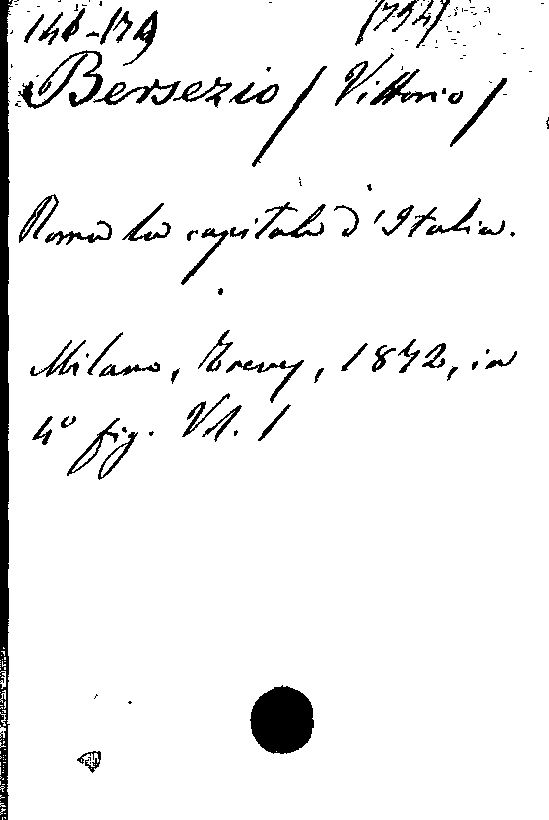 (794)
Bersezio / Vittorio /
Roma la capitale d'Italia.
Milano, Treves, 1872, in
4° fig. Vol. 1